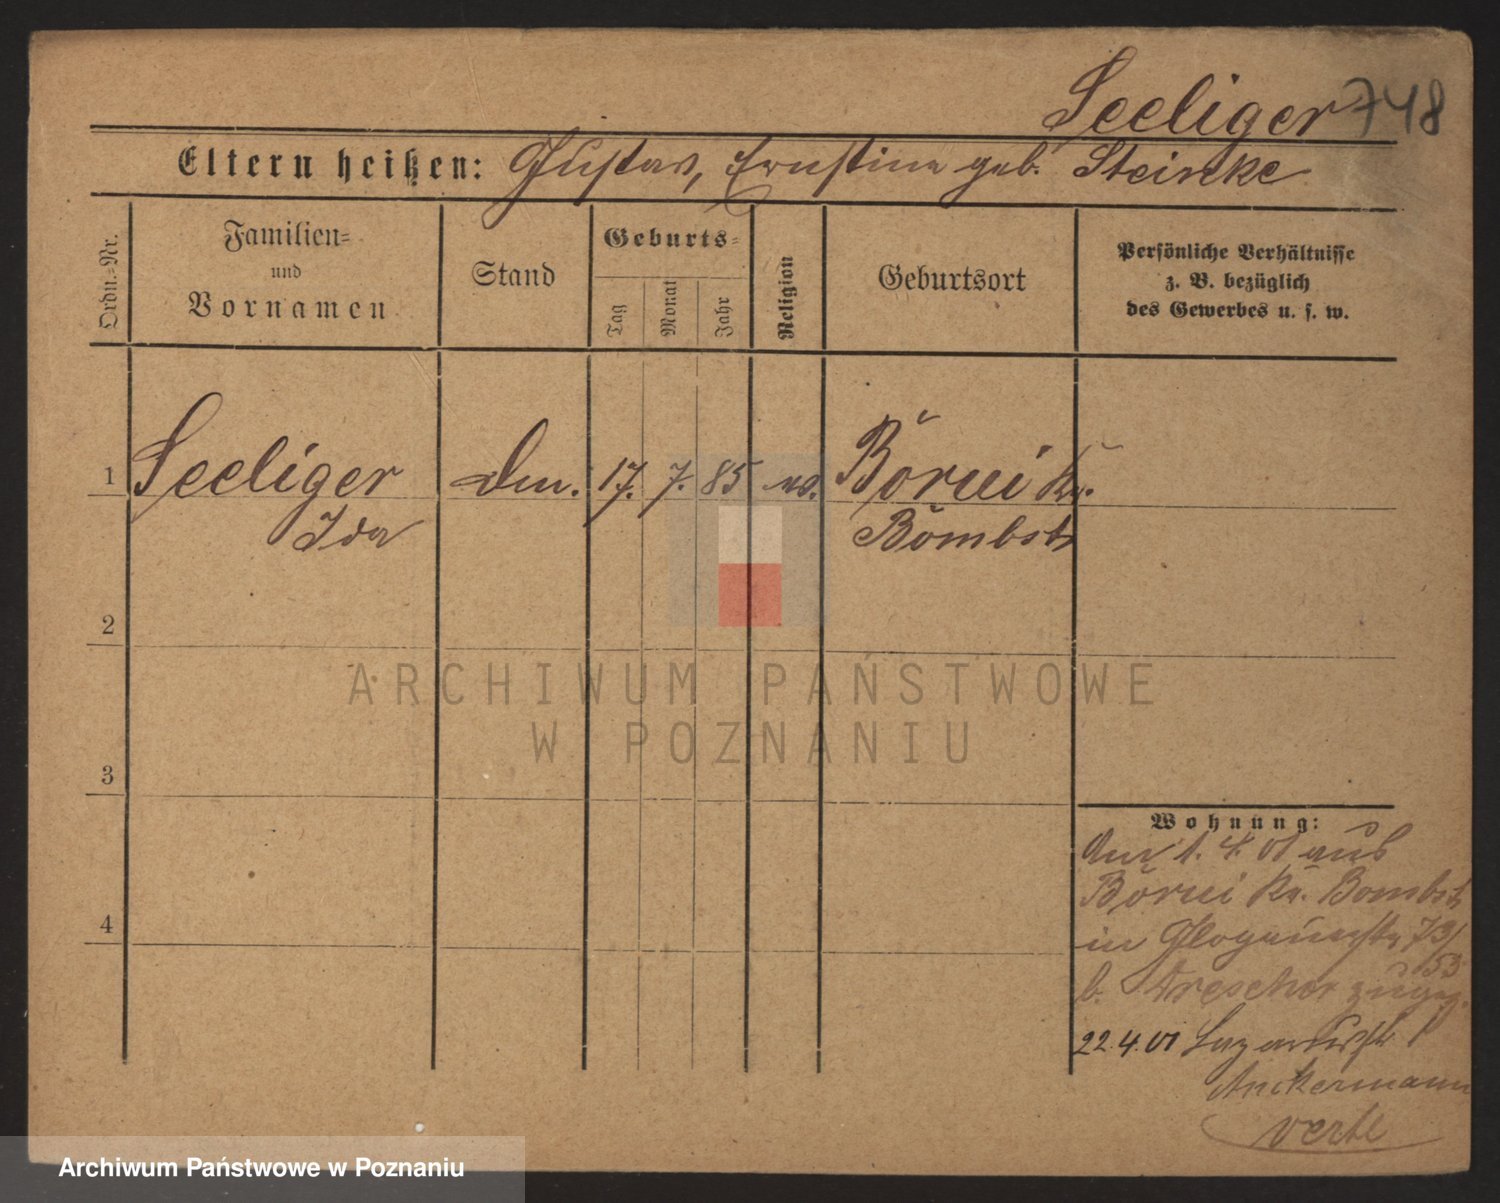 Seeliger 748
Eltern heißen: Gustav, Ernstine geb. Steinke
Ordn.-Nr.
Familien-
und
Vornamen
Stand
Geburts-
Tag
Monat
Jahr
Religion
Geburtsort
Persönliche Verhältnisse
z. B. bezüglich
des Gewerbes u. s. w.
1 Seeliger 17. 7. 85 Börui Kr.
Ida Bombst
2
ARCHIWUM PAŃSTWOWE
W POZNANIU
3
Wohnung:
1. 4. 01 aus
Börui Kr. Bombst
4
in Glogauerstr 73/
53
b. Drescher zugez.
22.4.01 Lazarusstr
Anckermann
verte
Archiwum Państwowe w Poznaniu